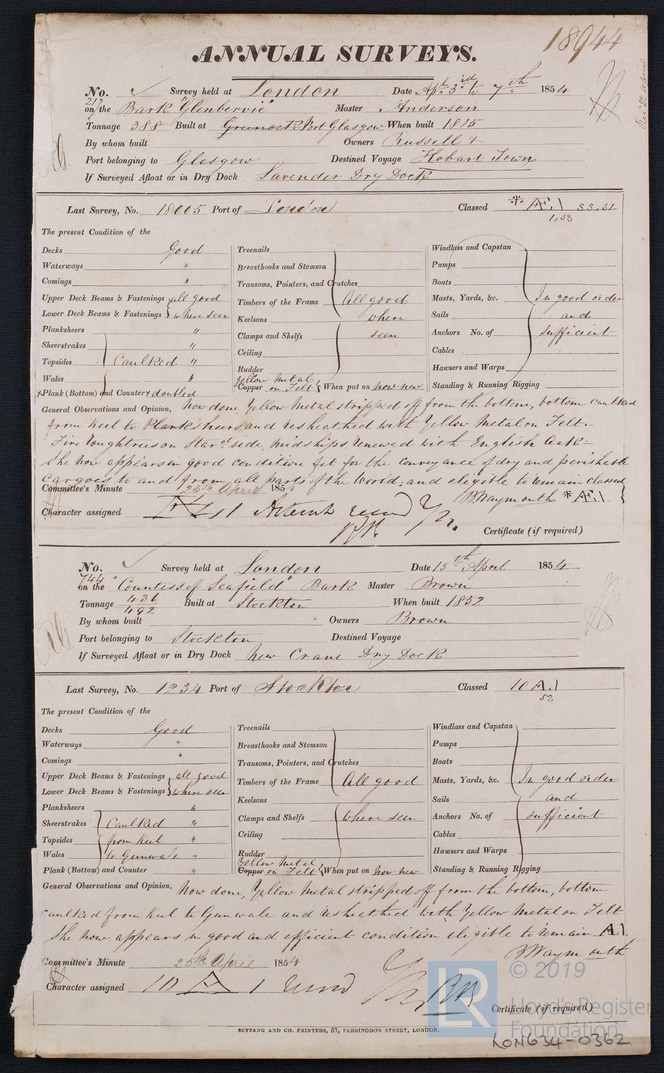 18944
ANNUAL SURVEYS.
No. Survey held at London Date Ap. 3rd to 7th 1854
217
on the Bark "Glenbervie" Master Anderson
Tonnage 388 Built at Greenock Port Glasgow When built 1815
By whom built Owners Russell &
Port belonging to Glasgow Destined Voyage Hobart Town
If Surveyed Afloat or in Dry Dock Lavender Dry Dock
Last Survey, No. 18005 Port of London Classed * Æ.1 SS.51
1,53
The present Condition of the
Decks Good Treenails Windlass and Capstan
Waterways " Breasthooks and Stemson Pumps
Comings " Transoms, Pointers, and Crutches Boats
Upper Deck Beams & Fastenings all good Timbers of the Frame All good Masts, Yards, &c. In good order
Lower Deck Beams & Fastenings where seen Keelsons where Sails and
Planksheers " Clamps and Shelfs seen Anchors No. of sufficient
Sheerstrakes Ceiling Cables
Topsides Caulked " Rudder Hawsers and Warps
Wales " Yellow Metal
Plank (Bottom) and Counter & doubled Copper on Felt When put on now new Standing & Running Rigging
General Observations and Opinion, Now done, Yellow Metal stripped off from the bottom, bottom caulked
from keel to Planksheers, and resheathed with Yellow Metal on Felt.
Five toughtrees on Starbd side, midships renewed with English Oak
She now appears in good condition fit for the conveyance of dry and perishable
cargoes to and from all parts of the World; and eligible to remain classed
Committee's Minute 25th April 1854 P. Waymouth * Æ.1.
Character assigned Æ 1
Certificate (if required)
No. Survey held at London Date 15th April 1854
744
on the "Countess of Seafield" Bark Master Brown
Tonnage 436/492 Built at Stockton When built 1852
By whom built Owners Brown
Port belonging to Stockton Destined Voyage
If Surveyed Afloat or in Dry Dock New Crane Dry Dock
Last Survey, No. 1234 Port of Stockton Classed 10 A.1
52
The present Condition of the
Decks Good Treenails Windlass and Capstan
Waterways " Breasthooks and Stemson Pumps
Comings " Transoms, Pointers, and Crutches Boats
Upper Deck Beams & Fastenings all good Timbers of the Frame All good Masts, Yards, &c. In good order
Lower Deck Beams & Fastenings where seen Keelsons Sails and
Planksheers " Clamps and Shelfs where seen Anchors No. of sufficient
Sheerstrakes Caulked " Ceiling Cables
Topsides from keel " Rudder Hawsers and Warps
Wales to Gunwale " Yellow Metal
Plank (Bottom) and Counter " Copper on Felt When put on now new Standing & Running Rigging
General Observations and Opinion, Now done, Yellow Metal stripped off from the bottom, bottom
caulked from keel to Gunwale and resheathed with Yellow Metal on Felt
She now appears in good and efficient condition eligible to remain A.1.
P. Waymouth
Committee's Minute 25th April 1854
Character assigned 10 A 1
Certificate (if required)
LR © 2019
Lloyd's Register
Foundation
SEYFANG AND CO. PRINTERS, 57, FARRINGDON STREET, LONDON.
LON634-0362